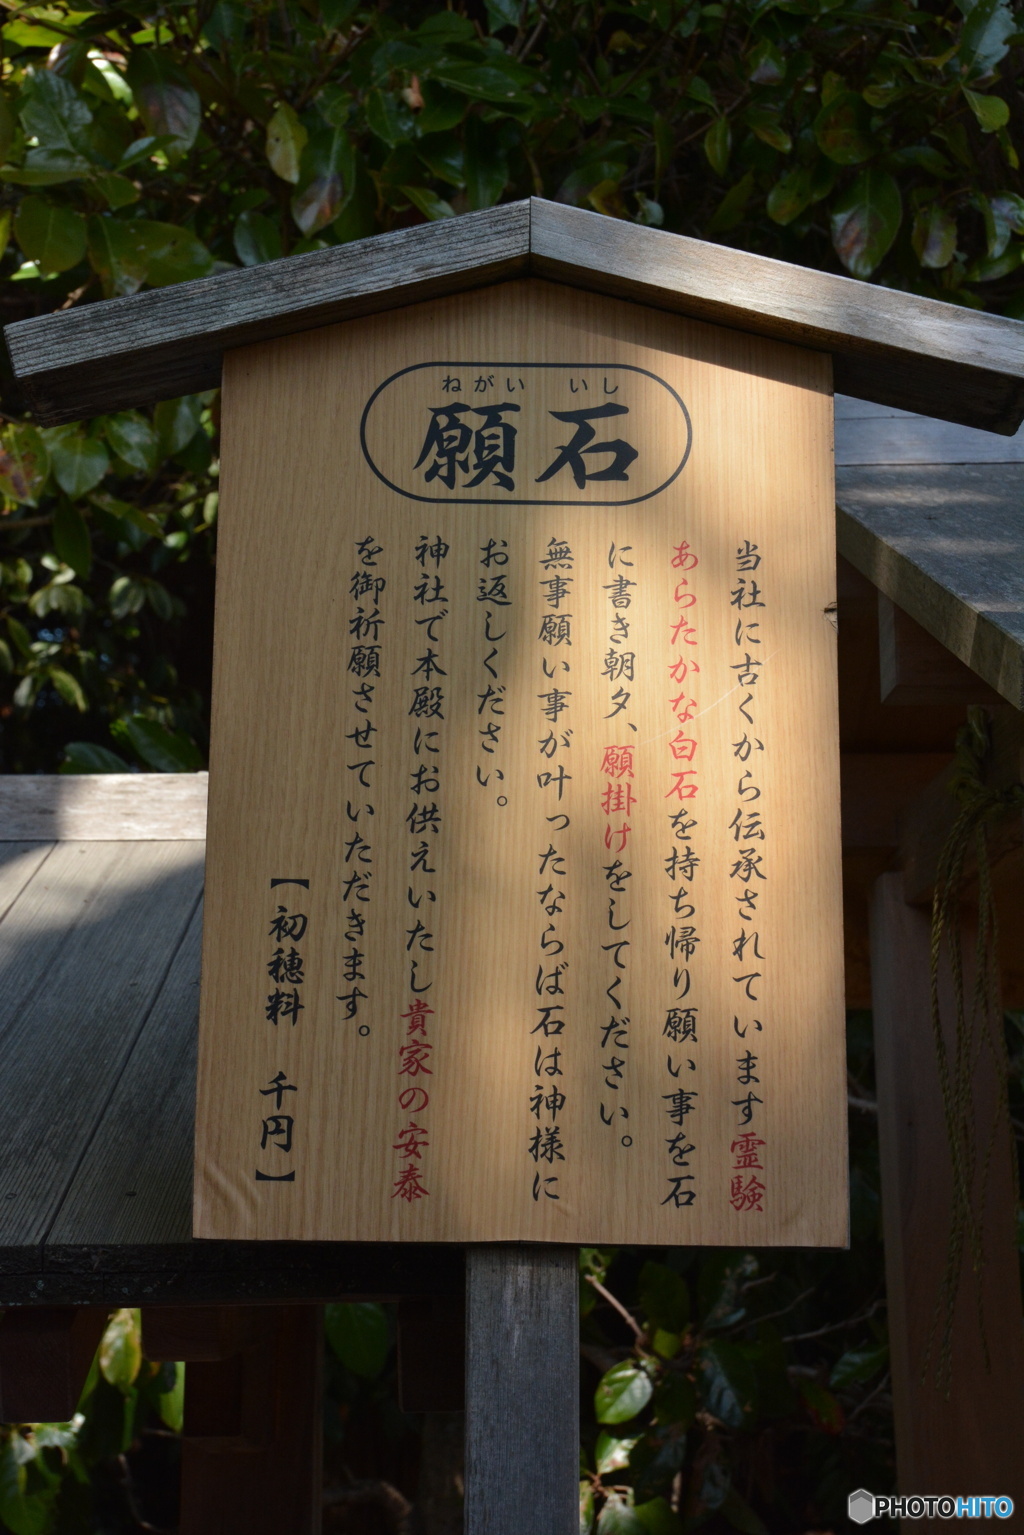 ねがい　いし
願石
当社に古くから伝承されています霊験
あらたかな白石を持ち帰り願い事を石
に書き朝夕、願掛けをしてください。
無事願い事が叶ったならば石は神様に
お返しください。
神社で本殿にお供えいたし貴家の安泰
を御祈願させていただきます。
【初穂料　千円】
PHOTOHITO